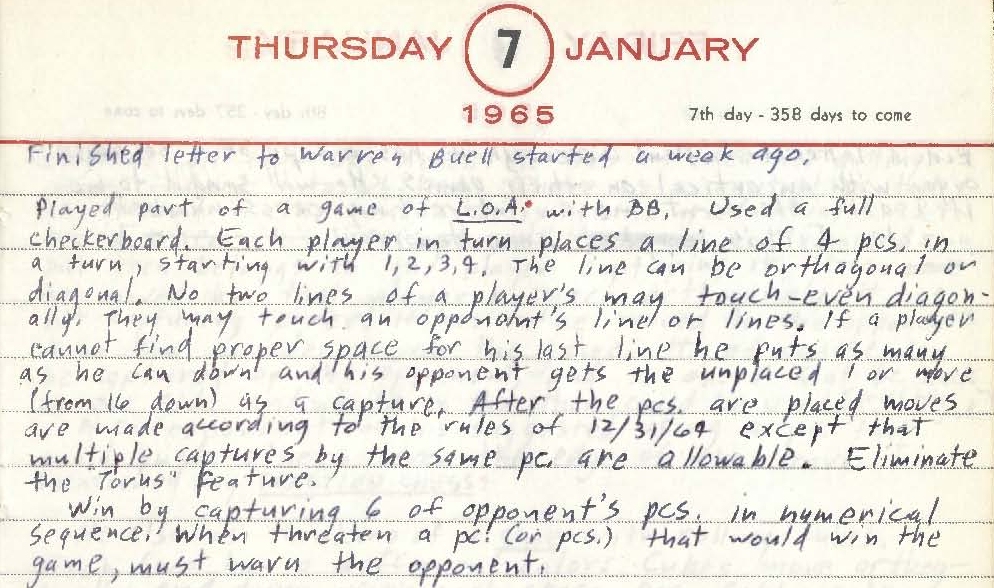 THURSDAY 7 JANUARY
1965 7th day - 358 days to come
Finished letter to Warren Buell started a week ago.
Played part of a game of L.O.A. with BB. Used a full
checkerboard. Each player in turn places a line of 4 pcs. in
a turn, starting with 1,2,3,4. The line can be orthagonal or
diagonal. No two lines of a player's may touch-even diagon-
ally. They may touch an opponant's line or lines. If a player
cannot find proper space for his last line he puts as many
as he can down and his opponent gets the unplaced 1 or more
(from 16 down) as a capture. After the pcs. are placed moves
are made according to the rules of 12/31/64 except that
multiple captures by the same pc. are allowable. Eliminate
the "Torus" feature.
Win by capturing 6 of opponent's pcs. in numerical
sequence. When threaten a pc. (or pcs.) that would win the
game, must warn the opponent.